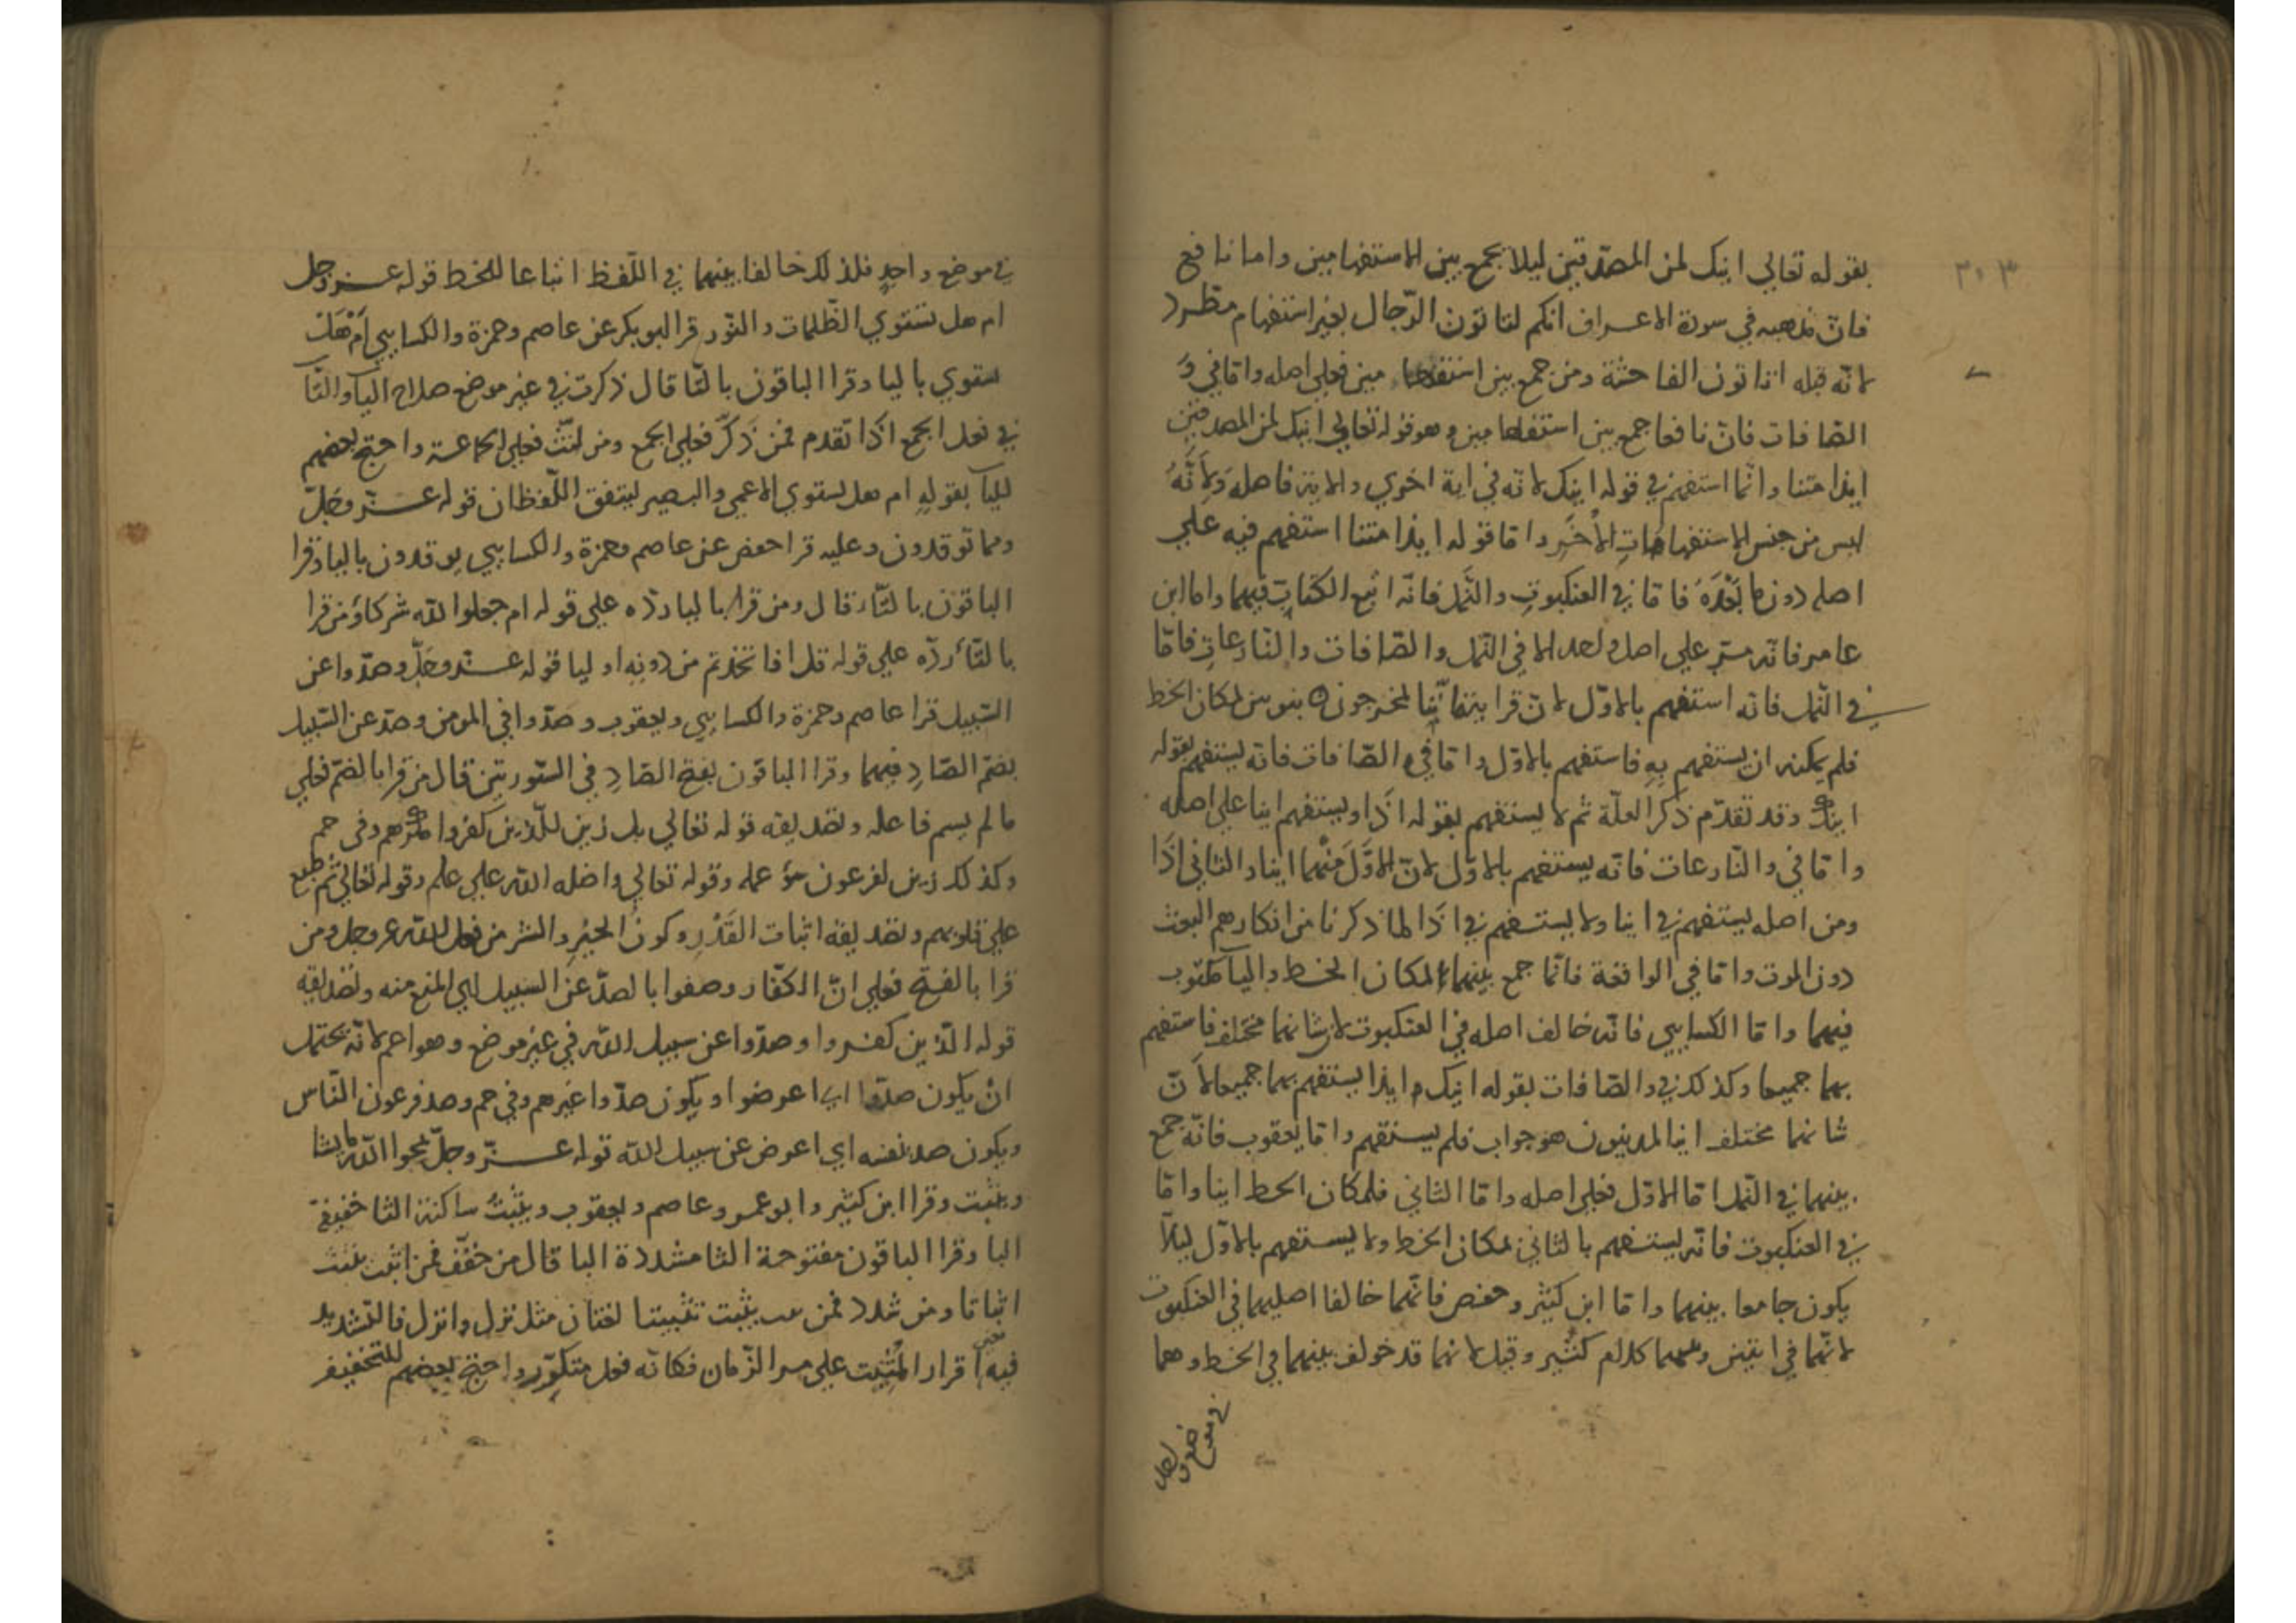 ٢٠٣
بقوله تعالي اينك لمن المصدّقين ليلا يجمع بين الاستفهامين واما نافع
فانّ مذهبه في سورة الاعراف انكم لتاتون الرّجال بغير استفهام مطّرد
لانّه قبله اتاتون الفاحشة ومن جمع بين استفهامين فعلي اصله وامّا في وَ
الصّافات فانّ نافعا جمع بين استفهامين وهو قوله تعالي اينك لمن المصدقين
ايذا متنا وانّما استفهم في قوله اينك لانّه في اية اخري والاية فاصلة وَلِاَنَّهُ
ليس من جنس الاستفهاماتِ الاُخَرِ وامّا قوله ايذا متنا استفهم فيه علي
اصله دون ما بَعْدَهُ فامّا في العنكبوتِ والنَّمل فانّه اتبع الكتابَ فيهما واما ابن
عامر فانّه مرّ علي اصلٍ واحد الا في النّمل والصّافات والنّازعاتِ فامّا
في النّمل فانّه استفهم بالاوّل لانّه قرا ايتفا اِنّنا لمخرجون بنونين لمكان الخط
فلم يمكنه ان يستفهم بِهِ فاستفهم بالاوّل وامّا في والصّافات فانّه يستفهم بقوله
اينك وقد تقدّم ذكر العلّة ثم لا يستفهم بقوله اذَا ويستفهم اينا علي اصله
وامّا في والنّازعات فانّه يستفهم بالاوّل لانّ الاوَّلَ مِنْهُما اينا والثاني اذَا
ومن اصله يستفهم في اينا ولا يستفهم في اذَا لما ذكرنا من انكارهم البعث
دون الموت وامّا في الواقعة فانّما جمع بينهما لمكان الخط والياَ مكتوب
فيهما وامّا الكسايي فانّه خالف اصله في العنكبوت لانّ شانهما مختلف فاستفهم
بهما جميعا وكذلك في والصّافات بقوله اينك وايذا يستفهم بهما جميعا لاَنّ
شانهما مختلف اينا لمدينون هو جواب فلم يستفهم وامّا يعقوب فانّه جمع
بينهما في النّمل امّا الاوّل فعلي اصله وامّا الثاني فلمكان الخط اينا وامّا
في العنكبوت فانّه يستفهم بالثاني لمكان الخط ولا يستفهم بالاوّل ليلاَ
يكون جامعا بينهما وامّا ابن كثير وحفص فانّهما خالفا اصليهما في العنكبوت
لانّهما في ايتين وبينهما كلام كثير وقيل لانهما قد خولف بينهما في الخط وهما
في موضع واحد
في موضع واحدٍ فلذلك خالفا بينهما في اللّفظ اتباعا للخط قوله عزّ وجل
ام هل تستوي الظّلمات والنّور قرا ابو بكر عن عاصم وحمزة والكسايي اَمْ هَل
يستوي باليا وقرا الباقون بالتّا قال ذكرت في غير موضع صلاح الياَ والتّاَ
في فعل الجمع اذا تقدم فمن ذَكّرَ فعلي الجمع ومن انّث فعلي الجماعة واحتج بعضهم
للياَ بقولهِ ام هل يستوي الاعمي والبصير ليتفق اللّفظان قوله عزّ وجلّ
ومما توقدون وعليه قرا حفص عن عاصم وحمزة والكسايي يوقدون باليا وقرا
الباقون بالتّاَ قال ومن قرا باليا ردّه علي قوله ام جعلوا لله شركاَ ومن قرا
بالتّاَ ردّه علي قوله قل افاتخذتم من دونِهِ اوليا قوله عزّ وجلّ وصدّوا عن
السّبيل قرا عاصم وحمزة والكسايي ويعقوب وصدّوا في المومن وصدّ عن السّبيل
بضمّ الصّادِ فيهما وقرا الباقون بفتح الصّادِ في السّورتين قال من قرا بالضّم فعلي
ما لم يسم فاعله وتصديقه قوله تعالي بل زين للّذين كفروا مكرهم وفي حم
وكذلك زين لفرعون سوَ عمله وقوله تعالي واضله الله علي علم وقوله تعالي ثم طبع
علي قلوبهم وتصديقه اثبات القَدَرِ وكونُ الخيرِ والشر من فعل الله عز وجل ومن
قرا بالفتح فعلي انّ الكفّار وصفوا بالصدّ عن السبيل اي المنع منه وتصديقه
قوله الّذين كفروا وصدّوا عن سبيل الله في غير موضع وهو اعم لانّه يحتمل
انْ يكون صدّوا اي اعرضوا ويكون صدّوا غيرهم وفي حم وصد فرعون النّاس
ويكون صد نفسه اي اعرض عن سبيل الله قوله عزّ وجلّ يمحوا الله ما يشا
ويثبت وقرا ابن كثير وابو عمرو وعاصم ويعقوب ويُثْبِتُ ساكنة الثا خفيفة
البا وقرا الباقون مفتوحة الثا مشددة البا قال من خفّف فمن اثبت يثبت
اثباتا ومن شدد فمن يثبت تثبيتا لغتان مثل نزل وانزل فالتّشديد
فيه معني اقرار المُثبت علي مر الزّمان فكانّه فعل متكرّر واحتج بعضهم للتخفيف